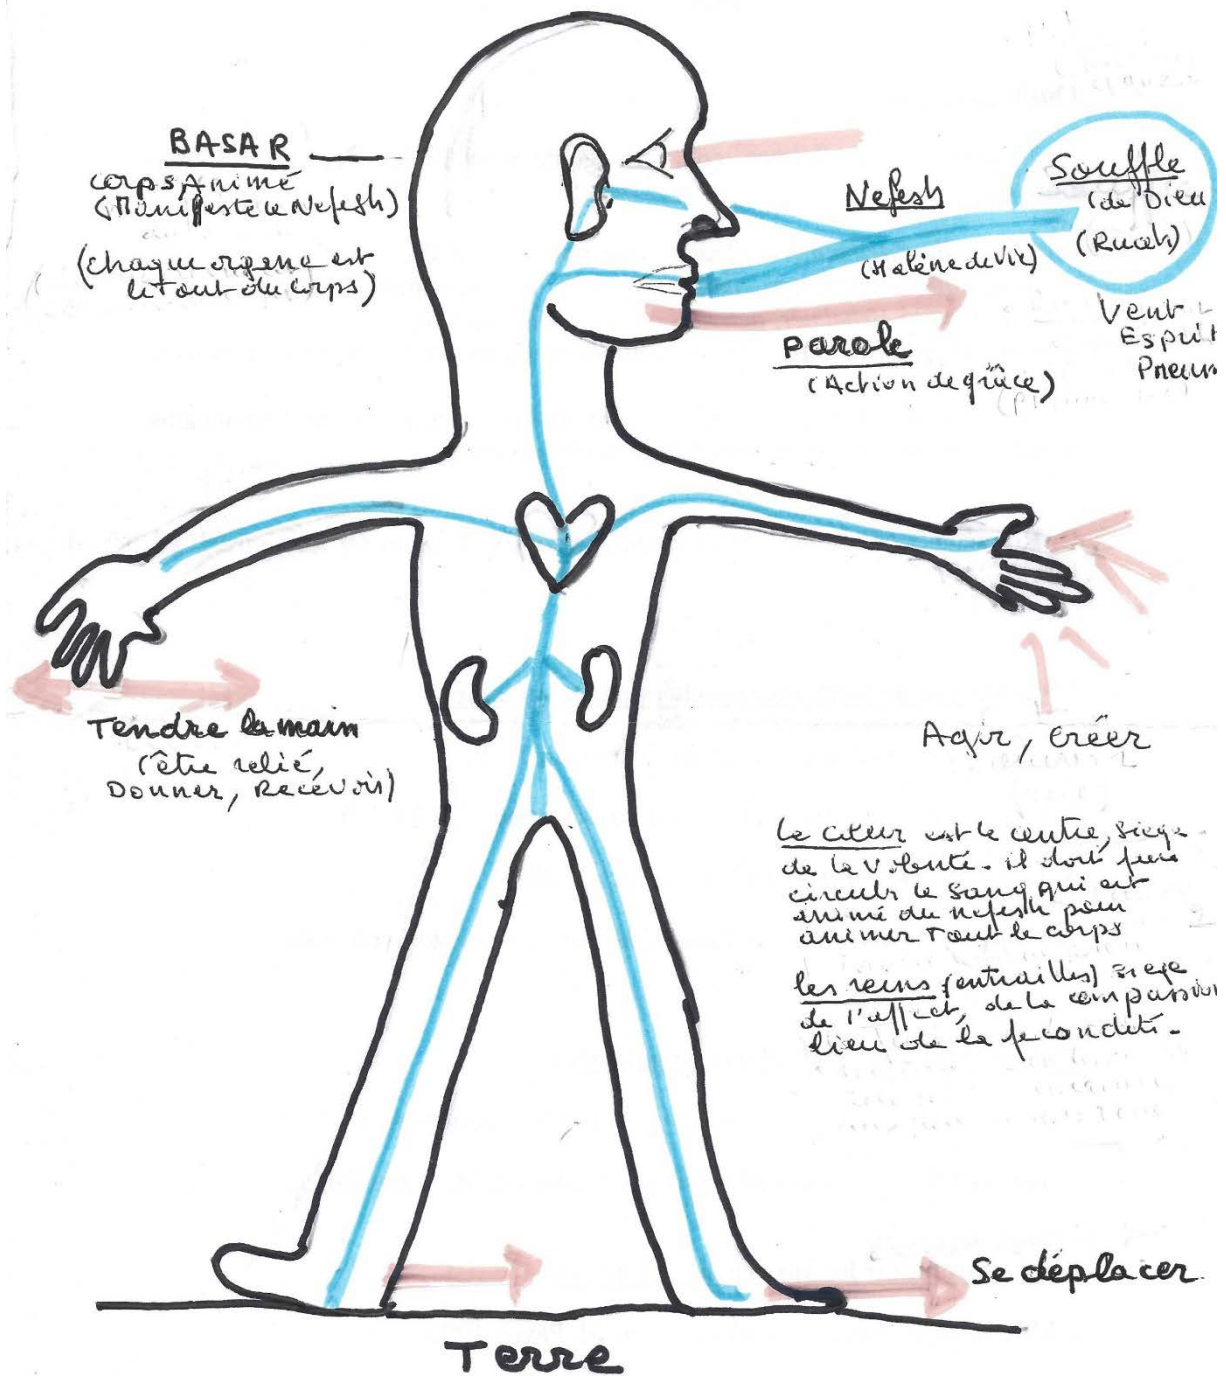 BASAR
corps Animé
(Manifeste le Nefesh)
(chaque organe est
le tout du corps)
Nefesh
(Haleine de Vie)
Souffle
(de Dieu
(Ruah)
Vent
Esprit
Pneum
parole
(Action de grâce)
Tendre la main
(être relié,
Donner, Recevoir)
Agir, créer
Le cœur est le centre, siège
de la volonté. il doit faire
circuler le sang qui est
animé du nefesh pour
animer tout le corps
les reins (entrailles) siege
de l'affect, de la compassion
lieu de la fécondité.
Se déplacer
Terre